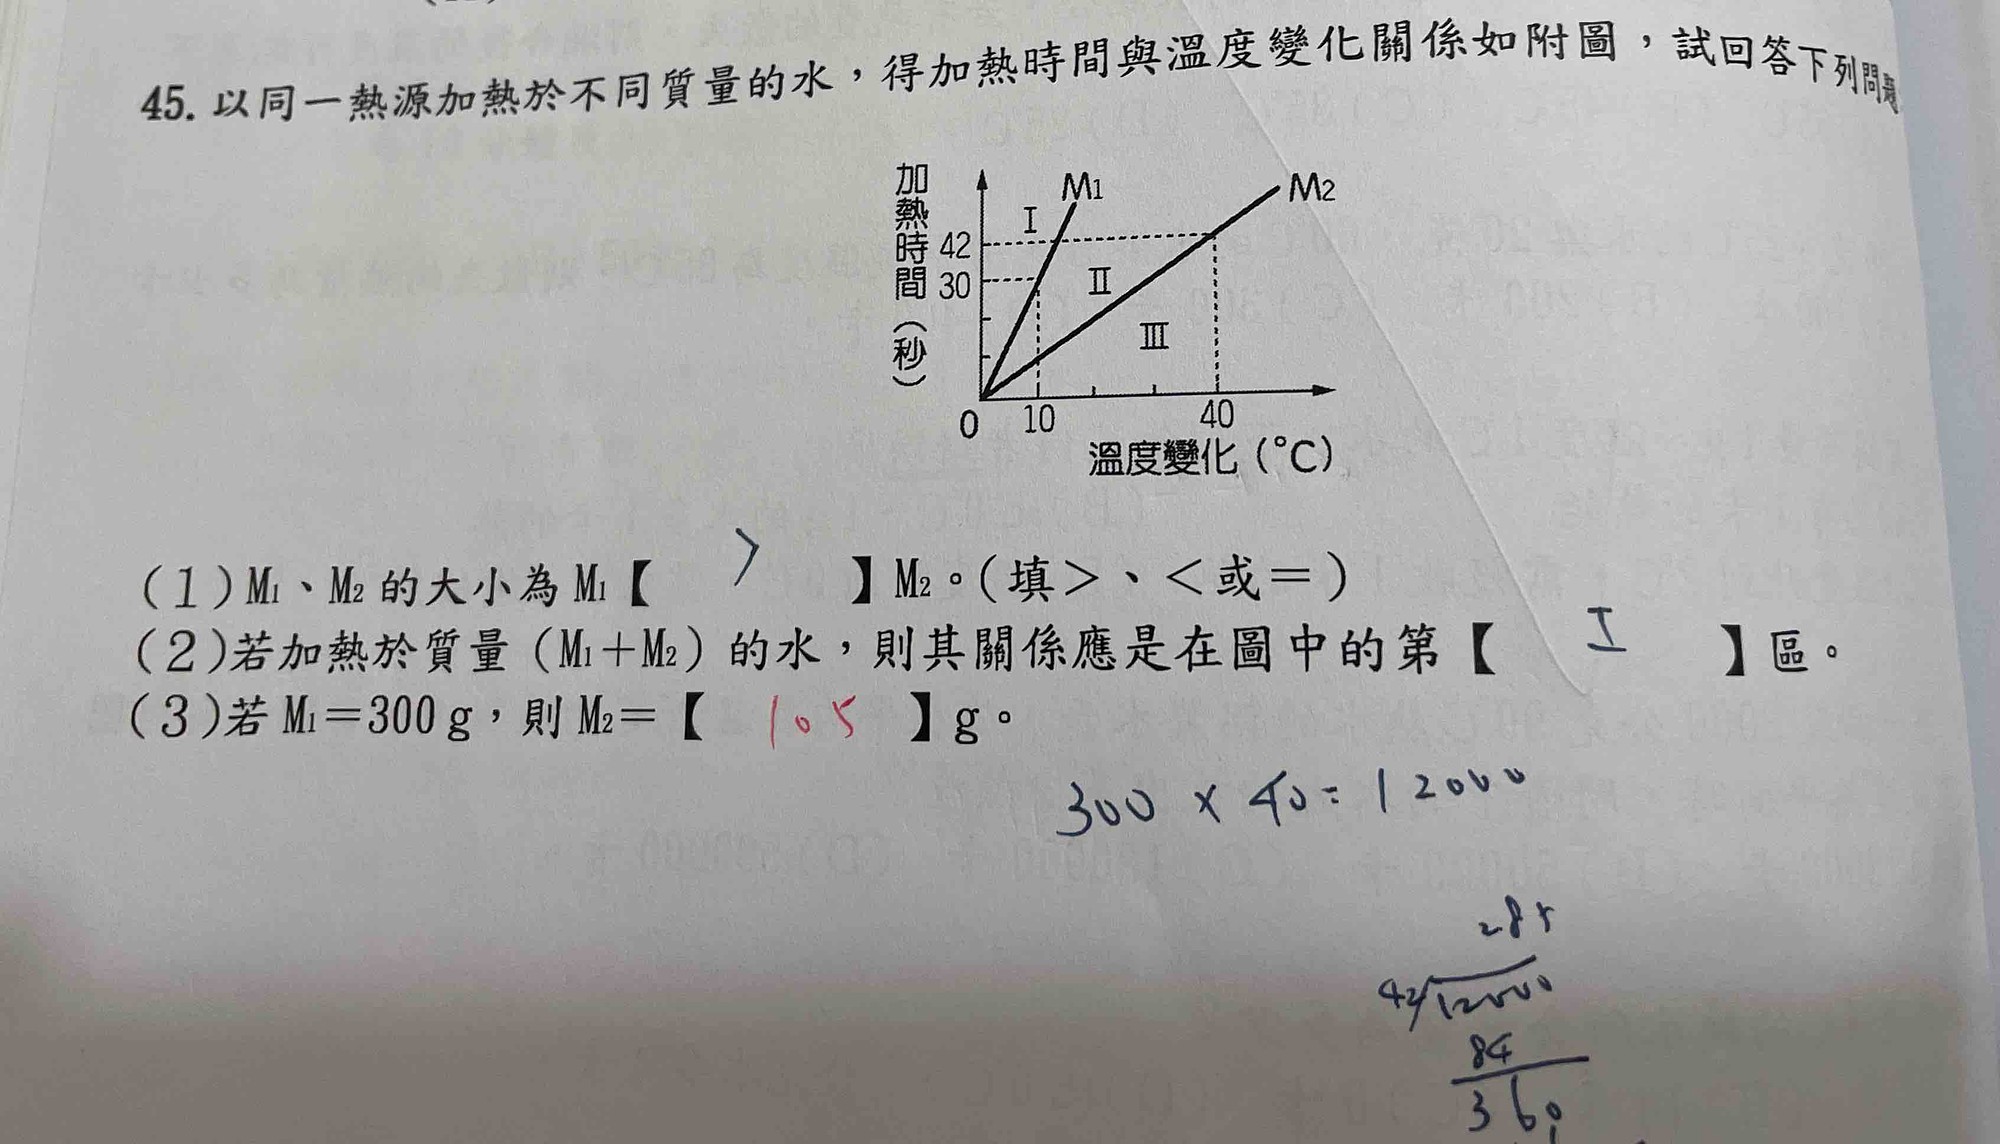 45. 以同一熱源加熱於不同質量的水，得加熱時間與溫度變化關係如附圖，試回答下列問題
加熱時間（秒）
M1
M2
I
42
30
II
III
0
10
40
溫度變化（℃）
（1）M1、M2 的大小為 M1【 > 】M2。（填＞、＜或＝）
（2）若加熱於質量（M1＋M2）的水，則其關係應是在圖中的第【 I 】區。
（3）若 M1＝300 g，則 M2＝【 105 】g。
300 × 40 = 12000
285
42 12000
84
360